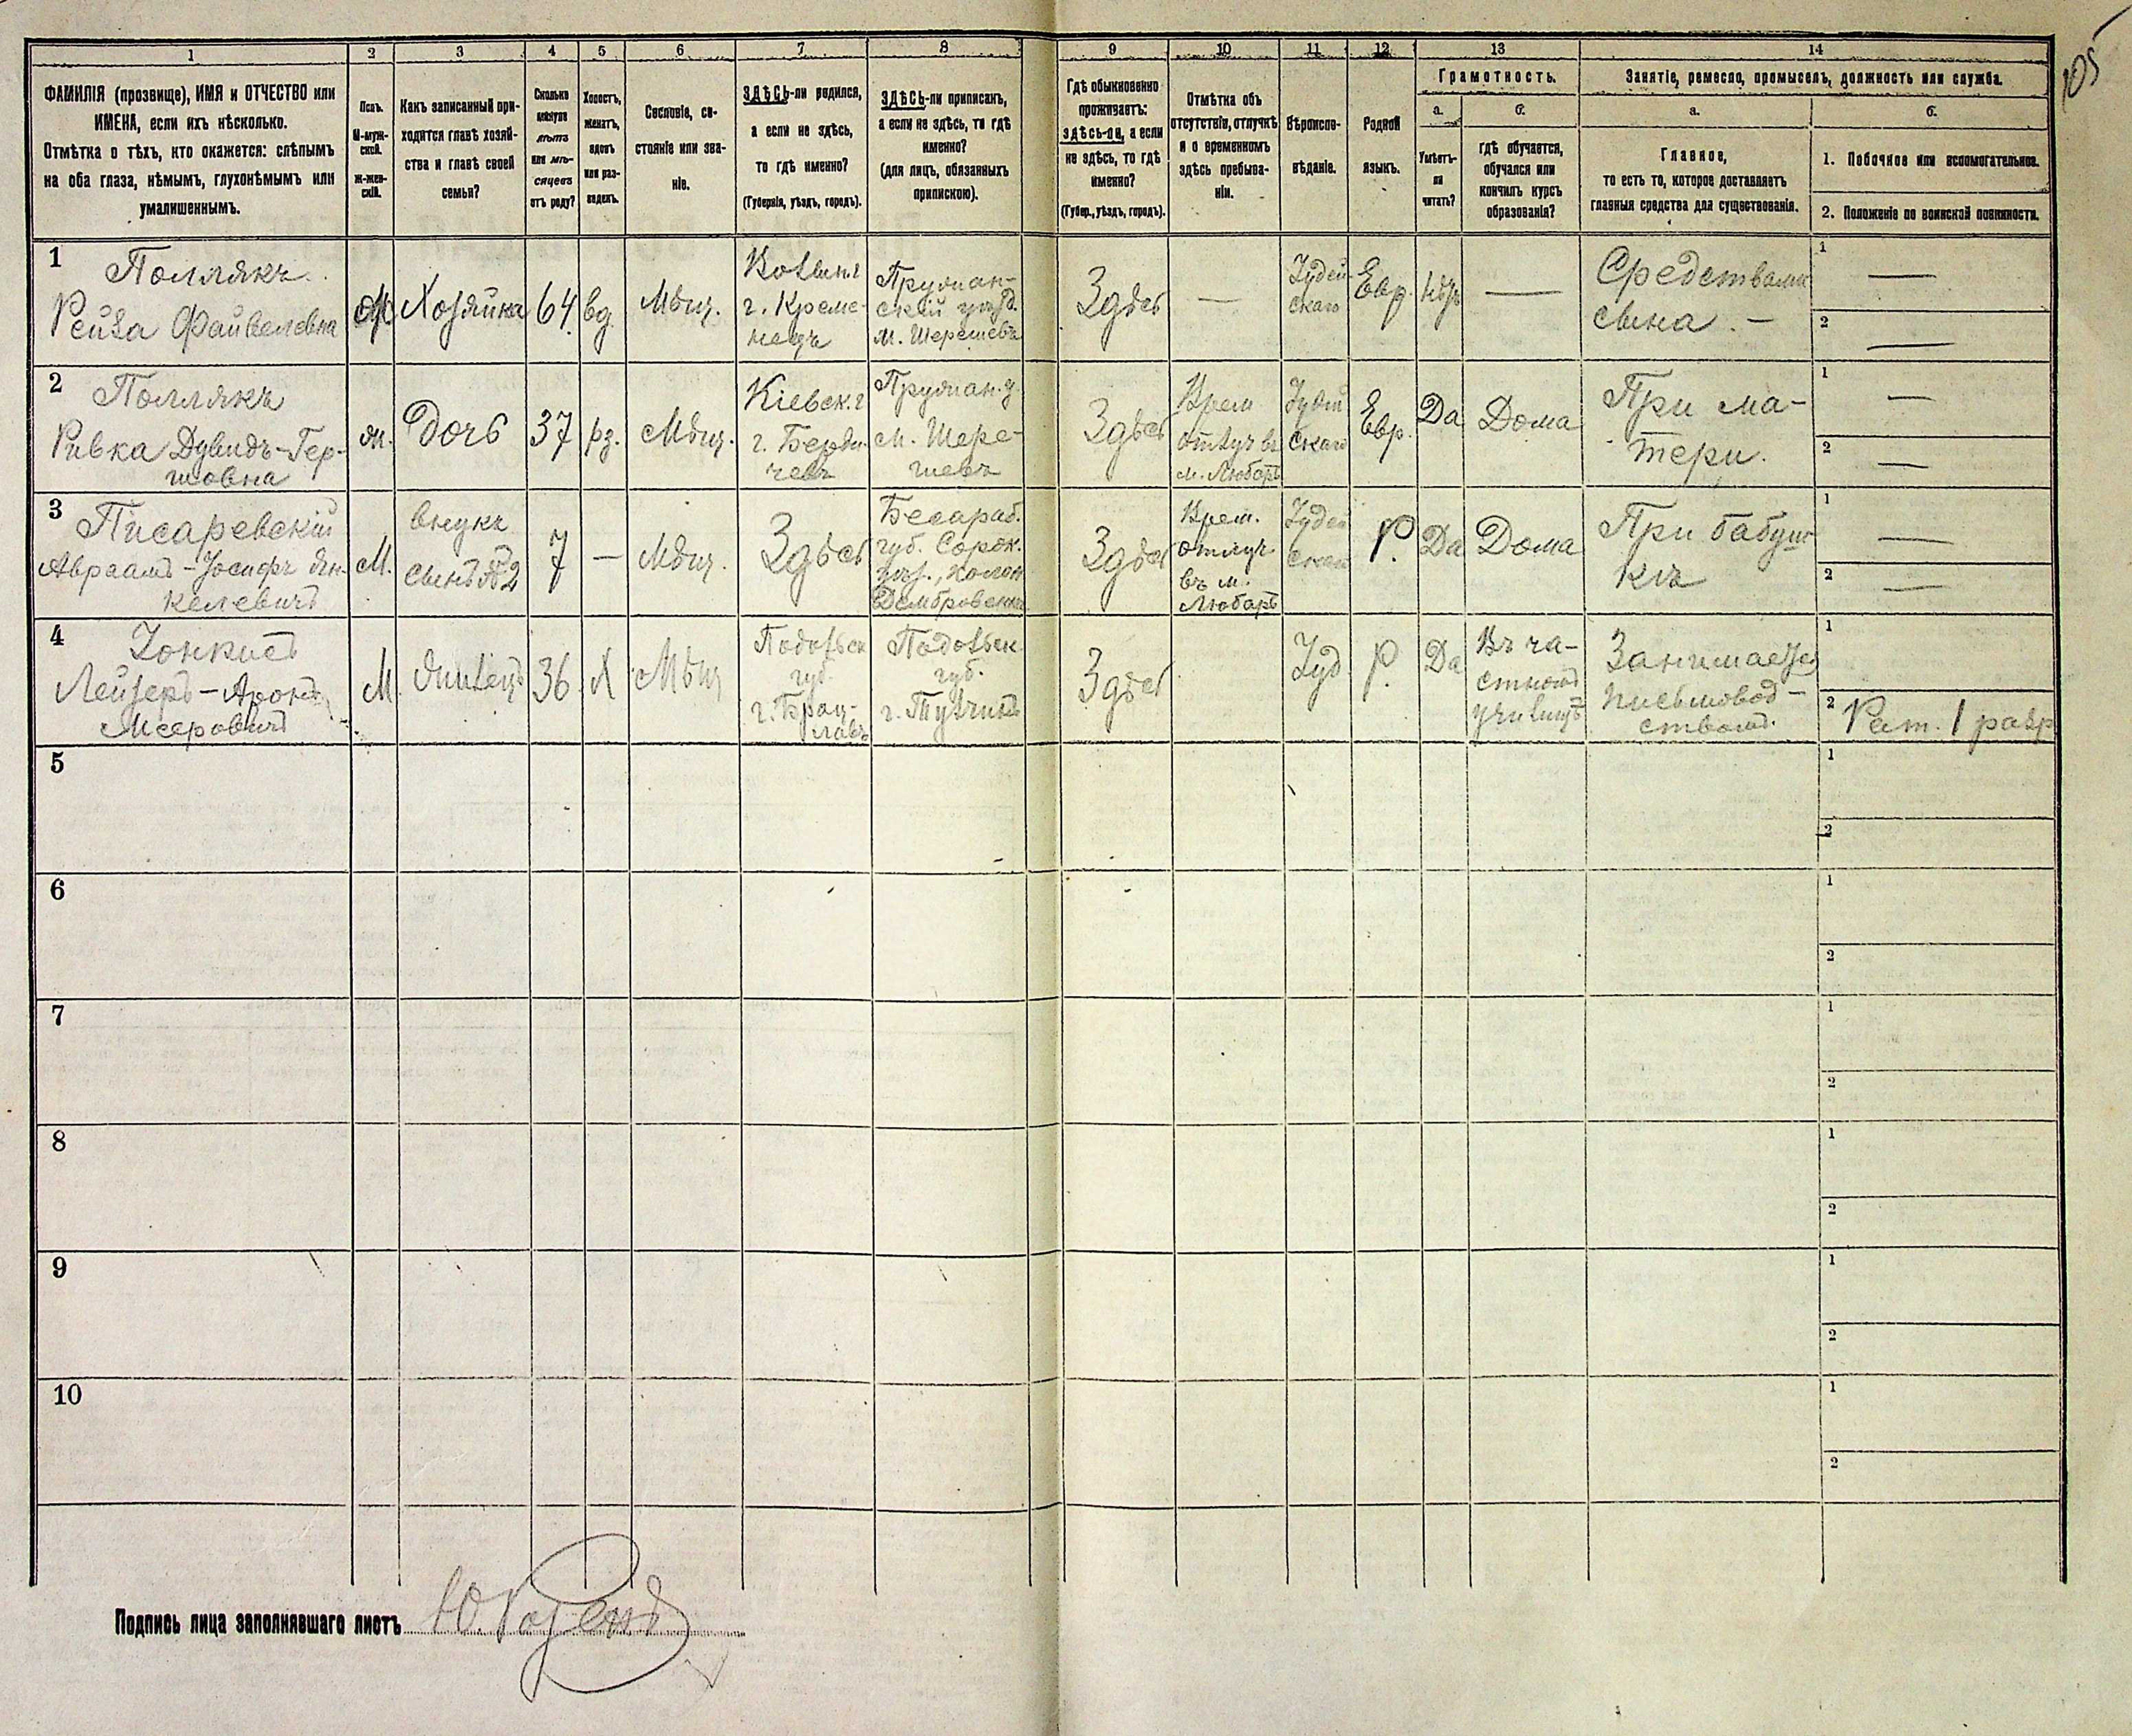 105
1
2
3
4
5
6
7
8
9
10
11
12
13
14
ФАМИЛІЯ (прозвище), ИМЯ и ОТЧЕСТВО или
ИМЕНА, если ихъ нѣсколько.
Отмѣтка о тѣхъ, кто окажется: слѣпымъ
на оба глаза, нѣмымъ, глухонѣмымъ или
умалишеннымъ.
Полъ.
М-муж-
ской.
Ж-жен-
скій.
Какъ записанный при-
ходится главѣ хозяй-
ства и главѣ своей
семьи?
Сколько
минуло
лѣтъ
или мѣ-
сяцевъ
отъ роду?
Холостъ,
женатъ,
вдовъ
или раз-
веденъ.
Сословіе, со-
стояніе или зва-
ніе.
ЗДѢСЬ-ли родился,
а если не здѣсь,
то гдѣ именно?
(Губернія, уѣздъ, городъ).
ЗДѢСЬ-ли приписанъ,
а если не здѣсь, то гдѣ
именно?
(для лицъ, обязанныхъ
припискою).
Гдѣ обыкновенно
проживаетъ:
здѣсь-ли, а если
не здѣсь, то гдѣ
именно?
(Губер., уѣздъ, городъ).
Отмѣтка объ
отсутствіи, отлучкѣ
и о временномъ
здѣсь пребыва-
ніи.
Вѣроиспо-
вѣданіе.
Родной
языкъ.
Грамотность.
а.
Умѣетъ-
ли
читать?
б.
гдѣ обучается,
обучался или
кончилъ курсъ
образованія?
Занятіе, ремесло, промыселъ, должность или служба.
а.
Главное,
то есть то, которое доставляетъ
главныя средства для существованія.
б.
1. Побочное или вспомогательное.
2. Положеніе по воинской повинности.
1
Поллякъ
Рейза Файвелевна
Ж
Хозяйка
64
вд.
Мѣщ.
Волын. г.
г. Креме-
нецъ
Пружан-
скій уѣзд.
м. Шерешевъ
Здѣсь
—
Іудей-
скаго
Евр.
нѣтъ
—
Средствами
сына. —
1
—
2
—
2
Поллякъ
Ривка Дувидъ-Гер-
шовна
ж.
дочь
37
рз.
Мѣщ.
Кіевск. г.
г. Берди-
чевъ
Пружан. у.
м. Шере-
шевъ
Здѣсь
Врем
отлуч въ
м. Любаръ
Іудей
скаго
Евр.
Да
Дома
При ма-
тери.
1
—
2
—
3
Писаревскій
Авраамъ-Іосифъ Ян-
келевичъ
М.
внукъ
сынъ №2
7
—
Мѣщ.
Здѣсь
Бесараб.
губ. Сорок.
уѣз., колон.
Домбровены
Здѣсь
Врем.
отлуч.
въ м.
Любаръ
Іудей
скаго
Р.
Да
Дома
При бабуш-
кѣ
1
—
2
—
4
Зонкисъ
Лейзеръ-Аронъ
Мееровичъ
М
жилецъ
36
Х
Мѣщ
Подольск
губ.
г. Брац-
лавъ
Подольск.
губ.
г. Тульчинъ
Здѣсь
Іуд
Р.
Да
Въ ча-
стномъ
училищѣ
Занимается
письмовод-
ствомъ.
1
2
Рат. 1 разр
5
1
2
6
1
2
7
1
2
8
1
2
9
1
2
10
1
2
Подпись лица заполнявшаго листъ